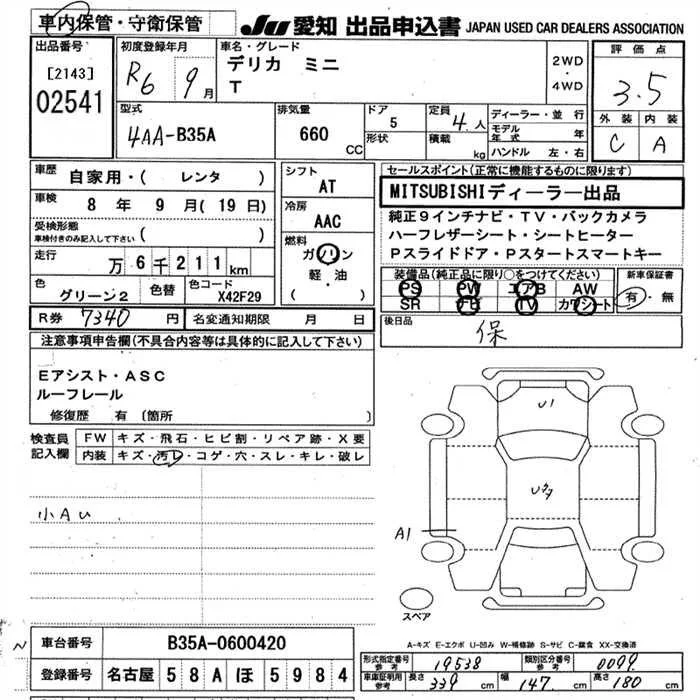 車内保管・守衛保管
JU 愛知 出品申込書 JAPAN USED CAR DEALERS ASSOCIATION
出品番号
[2143]
02541
初度登録年月
R6 9月
車名・グレード
デリカ ミニ
T
2WD
・
4WD
評価点
3.5
外装 内装
C A
型式
4AA-B35A
排気量
660 CC
ドア
5
形状
定員
4人
積載 kg
ディーラー・並行
モデル年式 年
ハンドル 左・右
車歴
自家用・( レンタ )
車検
8 年 9 月 ( 19 日)
受検形態
車検付きのみ記入して下さい ( )
走行
万 6 千 2 1 1 km
色
グリーン2
色替
色コード
X42F29
シフト
AT
冷房
AAC
燃料
ガソリン
軽・油
( )
セールスポイント(正常に機能するものに限ります)
MITSUBISHIディーラー出品
純正9インチナビ・TV・バックカメラ
ハーフレザーシート・シートヒーター
Pスライドドア・Pスタートスマートキー
装備品(純正品に限り○をつけてください)
PS PW エアB AW
SR ナビ TV カワシート
新車保証書
有・無
R券 7340 円 名変通知期限 月 日
後日品
保
注意事項申告欄(不具合内容等は具体的に記入して下さい)
Eアシスト・ASC
ルーフレール
修復歴 有 (箇所 )
検査員記入欄
FW キズ・飛石・ヒビ割・リペア跡・X要
内装 キズ・汚レ・コゲ・穴・スレ・キレ・破レ
小AU
U1
A1
スペア
A-キズ E-エクボ U-凹み W-補修跡 S-サビ C-腐食 XX-交換済
車台番号 B35A-0600420
登録番号 名古屋 5 8 A ほ 5 9 8 4
形式指定番号 参考 19538 類別区分番号 参考 0099
車庫証明用 参考 長さ 339 cm 幅 147 cm 高さ 180 cm